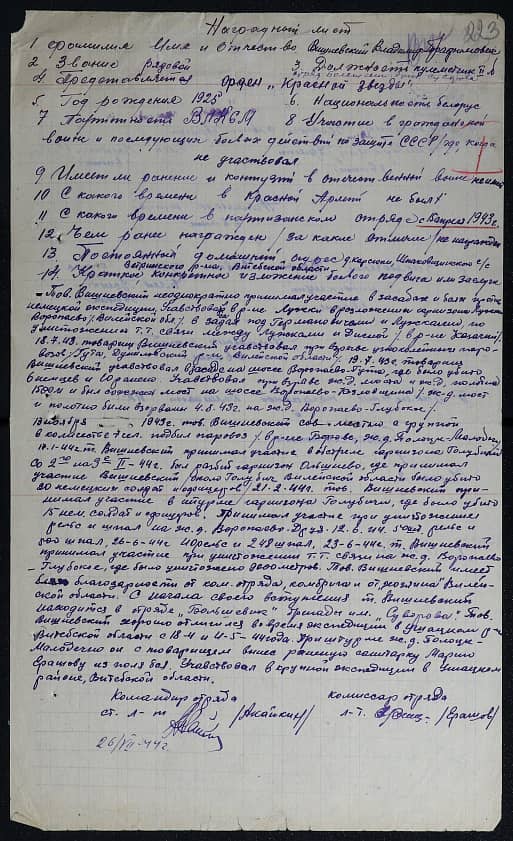 223
Наградной лист
1 Фамилия Имя и Отчество Вишневский Владимир
2 Звание рядовой 3. Должность пулеметчик
4 Представляется орден „Красной Звезды“
5. Год рождения 1925 6. Национальность белорус
7 Партийность ВЛКСМ 8 Участие в гражданской
войне и последующих боевых действий по защите СССР /где, когда
не участвовал
9 Имеет ли ранение и контузии в отечественной войне не имеет
10 С какого времени в Красной Армии не был
11 С какого времени в партизанском отряде с 1943 г.
12 Чем ранее награжден /за какие отличие/ не награжден
13 Постоянный домашний адрес д. с/с
р-на, Витебской области
14 Краткое конкретное изложение боевого подвига или заслуги
- Тов. Вишневский неоднократно принимал участие в засадах и боях против
немецкой экспедиции. Участвовал в р-не Лужки в разложении гарнизона
Воропаево / Вилейской обл /, в засаде под Германовичами и Лужками, по
уничтожению т.т. связи между Лужками и Дисной / в р-не
18.7.43. товарищ Вишневский участвовал при взрыве
р-н Вилейской области / 19.7.43 г. товарищ
Вишневский участвовал в засаде на шоссе Воропаево- где было убито
6 немцев и ранено. Участвовал при взрыве ж.д. моста и ж.д. полотна
и был мост на шоссе Воропаево-Козловщина /ж.д. мост
и полотно были взорваны 4.8.43 г. на ж.д. Воропаево-Глубокое /
1943г. тов. Вишневский совместно с группой
в количестве 7 чел. подбил паровоз / в р-не ж.д. Полоцк-Молодечно
-1-44 г. т. Вишневский принимал участие в гарнизона Голубичи
Со 2го на 3е II-44г. был разбит гарнизон где принимал
участие Вишневский около Голубич Вилейской области было убито
20 немецких солдат и 21.2.44 г. тов. Вишневский при-
нимал участие в штурме гарнизона Голубичи, где было убито
15 нем. солдат и офицеров. Принимал участие при уничтожении
рельс и шпал на ж.д. Воропаево- 12.6.44. рельс и
500 шпал, 26-6-44 г. 40 рельс и 248 шпал, 23-6-44 г. т. Вишневский
принимал участие при уничтожении т.т. связи на ж.д. Воропаево
-Глубокое, где было уничтожено метров. Тов. Вишневский имеет
благодарности от ком. отряда, комбрига и от Вилей-
ской области. С начала своего вступления т. Вишневский
находится в отряде „Большевик“ бригады им. „Суворова“. Тов.
Вишневский хорошо отличился во время экспедиции в Ушацком р-не
Витебской области с 18-4 и 4-5-44 года. При штурме ж.д. Полоцк-
Молодечно он с товарищем вынес раненую санитарку Марию
Ерашову из поля боя. Участвовал в крупной экспедиции в Ушацком
районе, Витебской области.
Командир отряда комиссар отряда
ст. л-т /Акайкин/ л-т. /Ерашов/
26/VII-44 г.